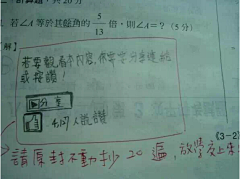 若∠A等於其餘角的 5/13 倍，則∠A=？（5分）
解】
若要觀看本內容，你需要分享連結
或按讚！
▶分享
4,127人說讚
(3-2)
請原封不動抄20遍，放學交上來